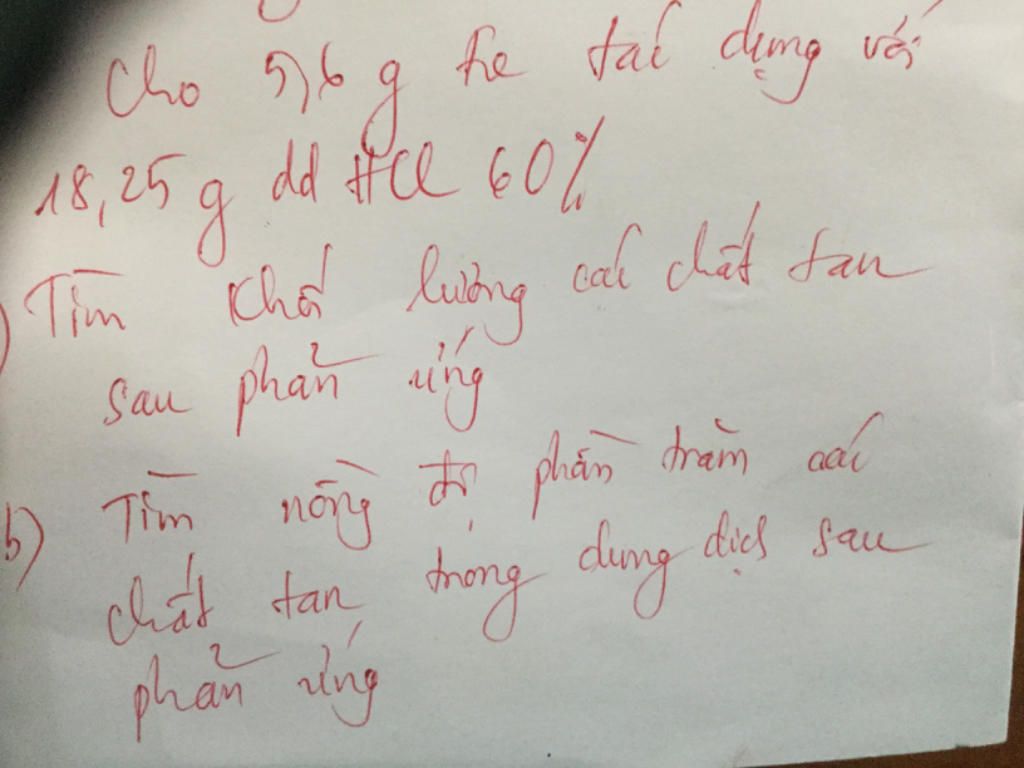 Cho 5,6 g Fe tác dụng với
18,25 g dd HCl 60%
) Tìm khối lượng các chất tan
sau phản ứng
b) Tìm nồng độ phần trăm các
chất tan trong dung dịch sau
phản ứng